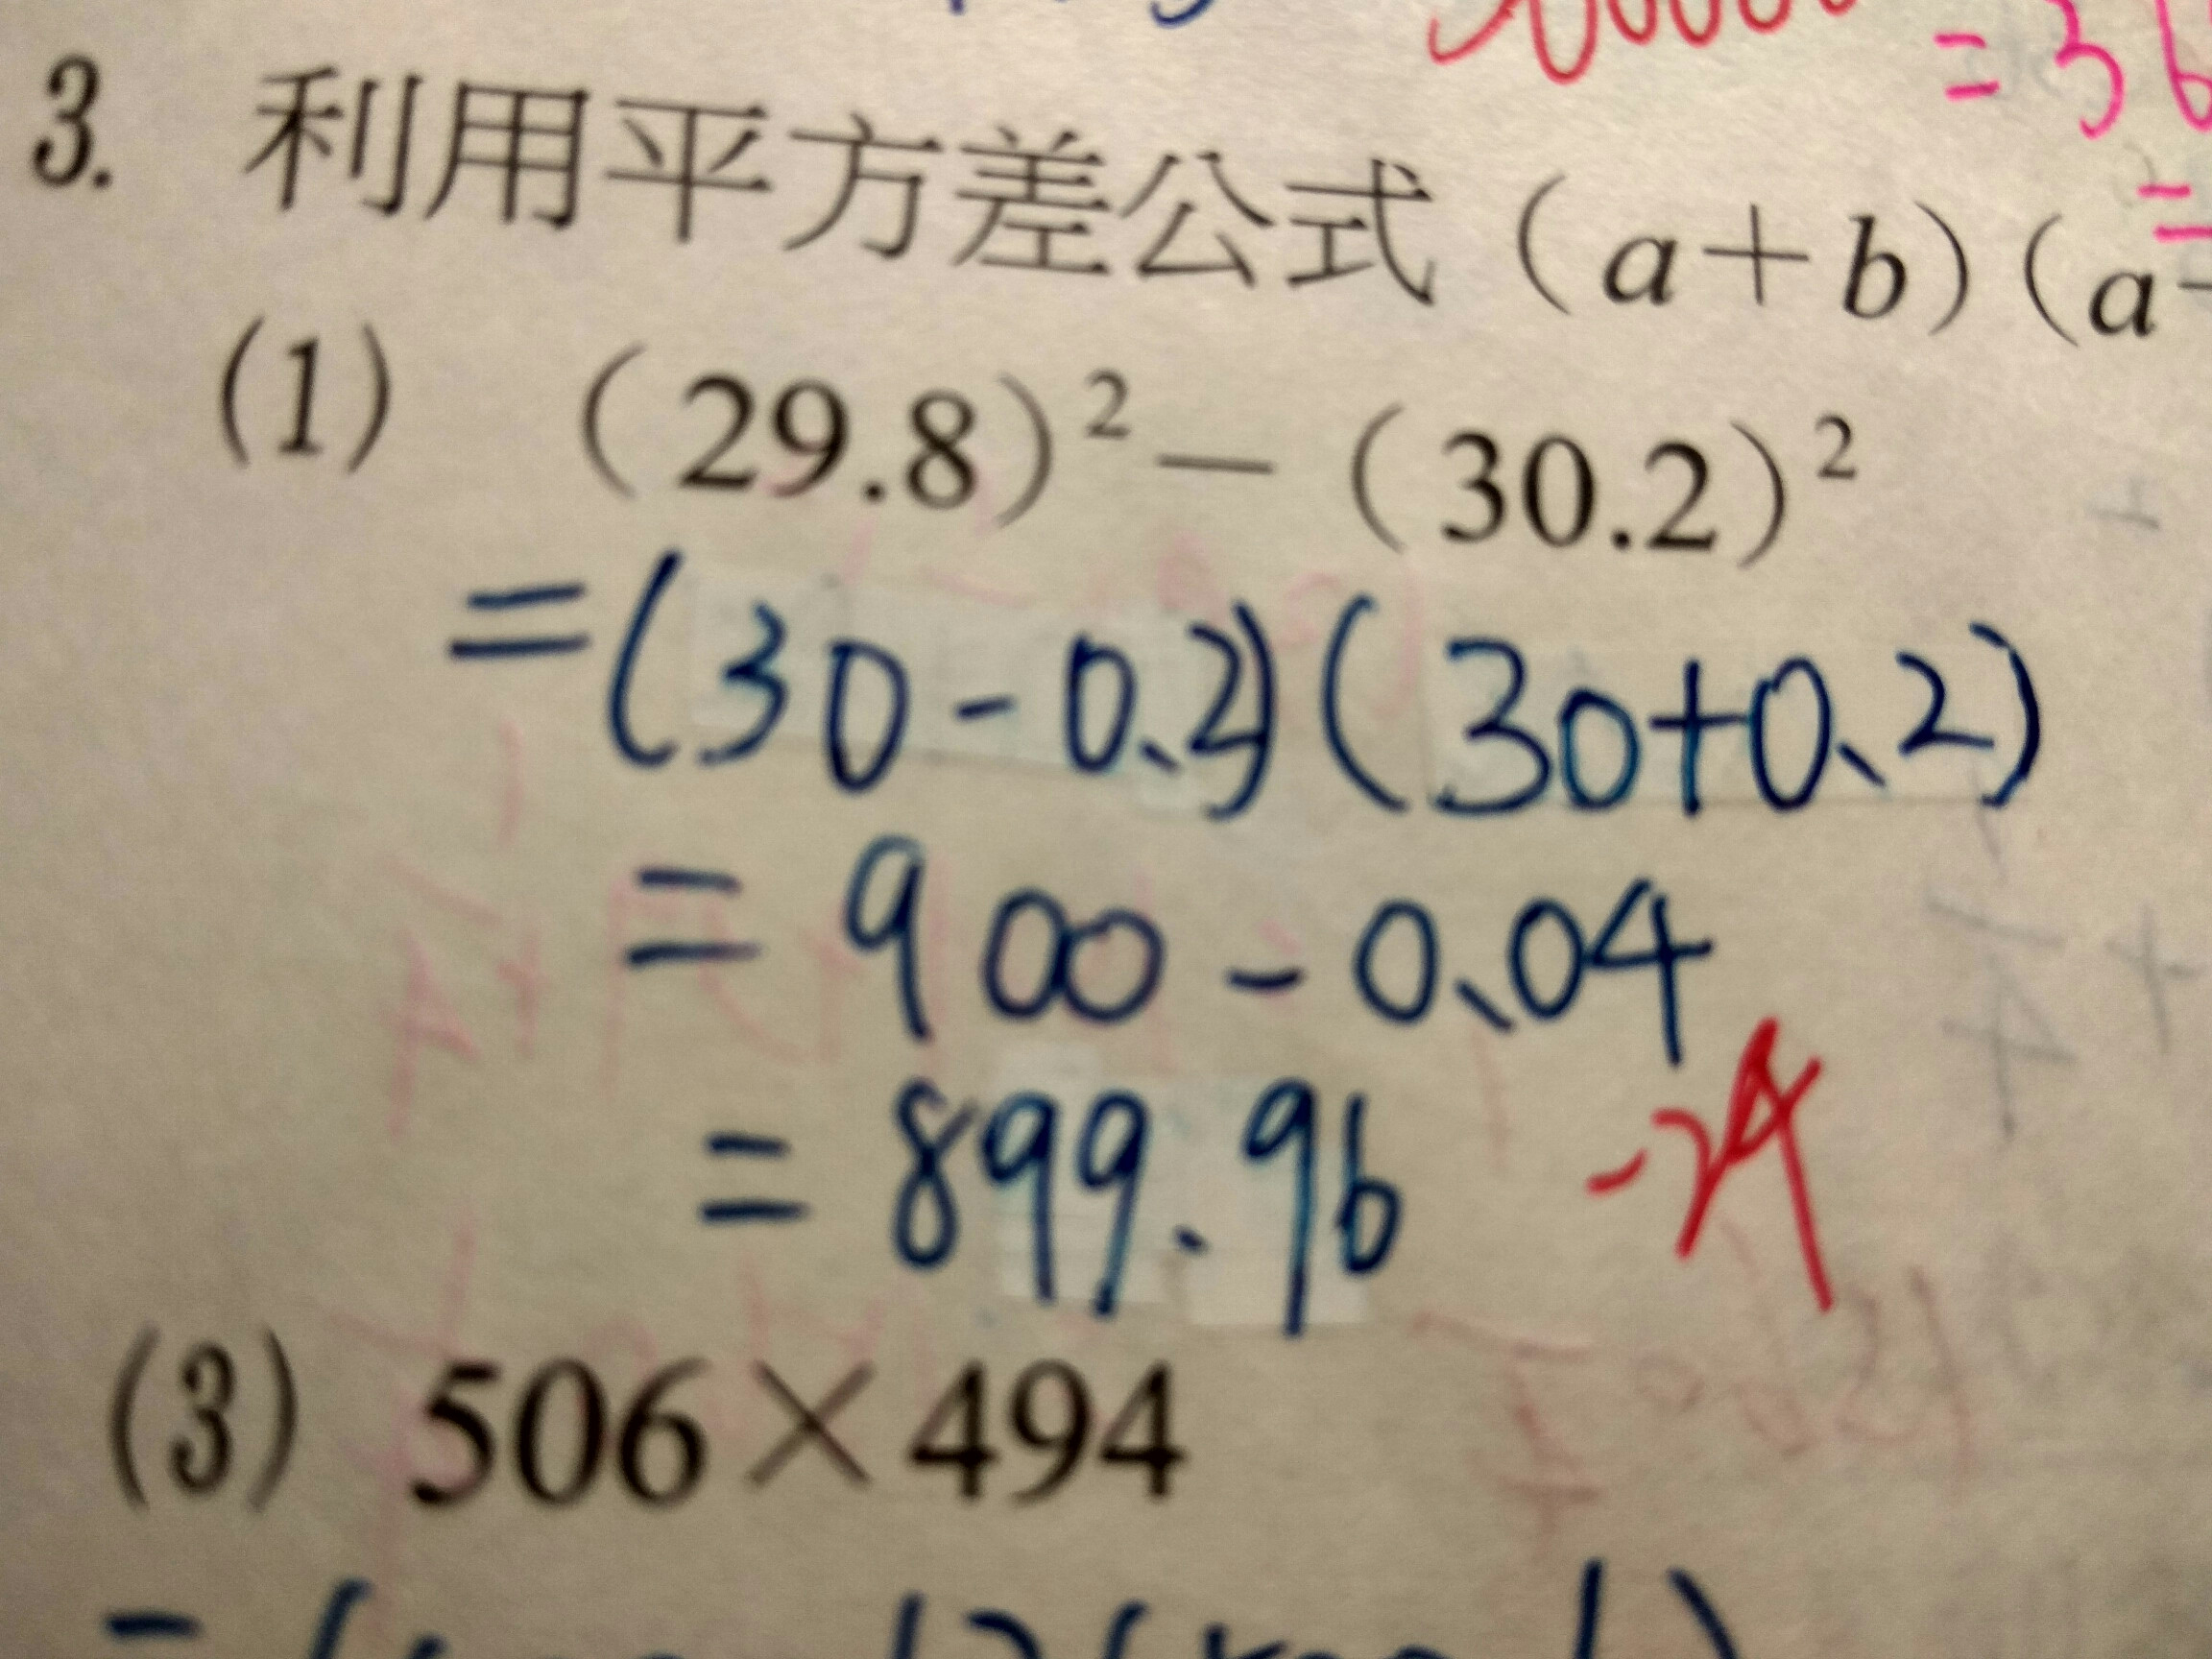 = 36
3. 利用平方差公式（a＋b）（a－
=
(1) （29.8）²－（30.2）²
=(30-0.2)(30+0.2)
= 900-0.04
= 899.96 -24
(3) 506×494